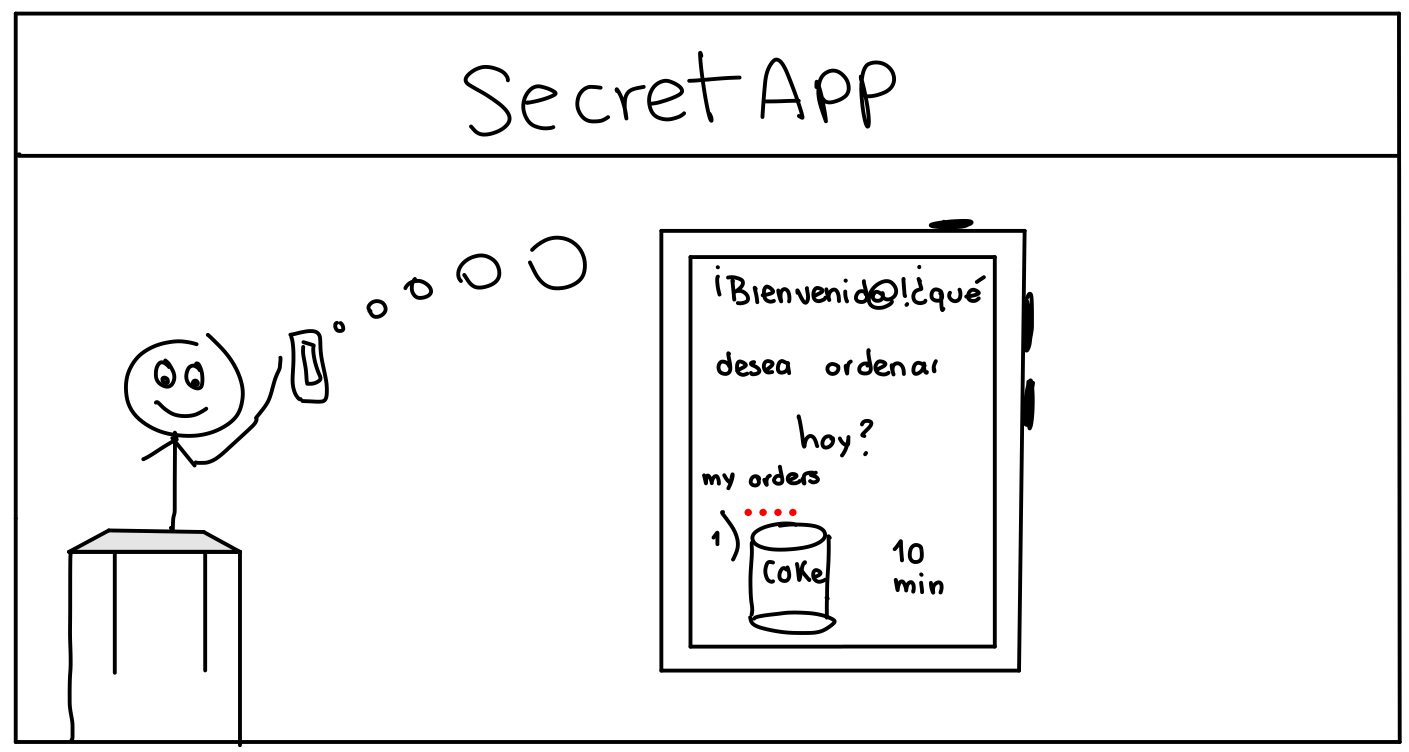 Secret App
¡Bienvenid@!¿qué
desea ordenar
hoy?
my orders
1)
Coke
10
min